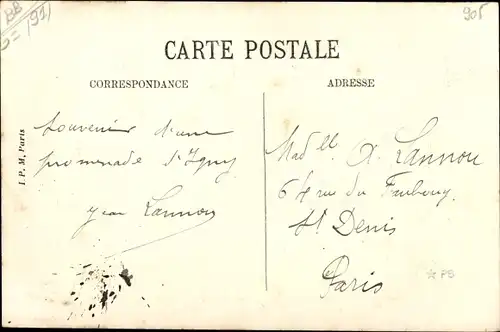 BB
(91)
905
CARTE POSTALE
CORRESPONDANCE
ADRESSE
I. P. M. Paris
Souvenir d'une
promenade d'Igny
Jean Lannou
Madlle A. Lannou
64 rue du Faubourg
St Denis
Paris
* PB